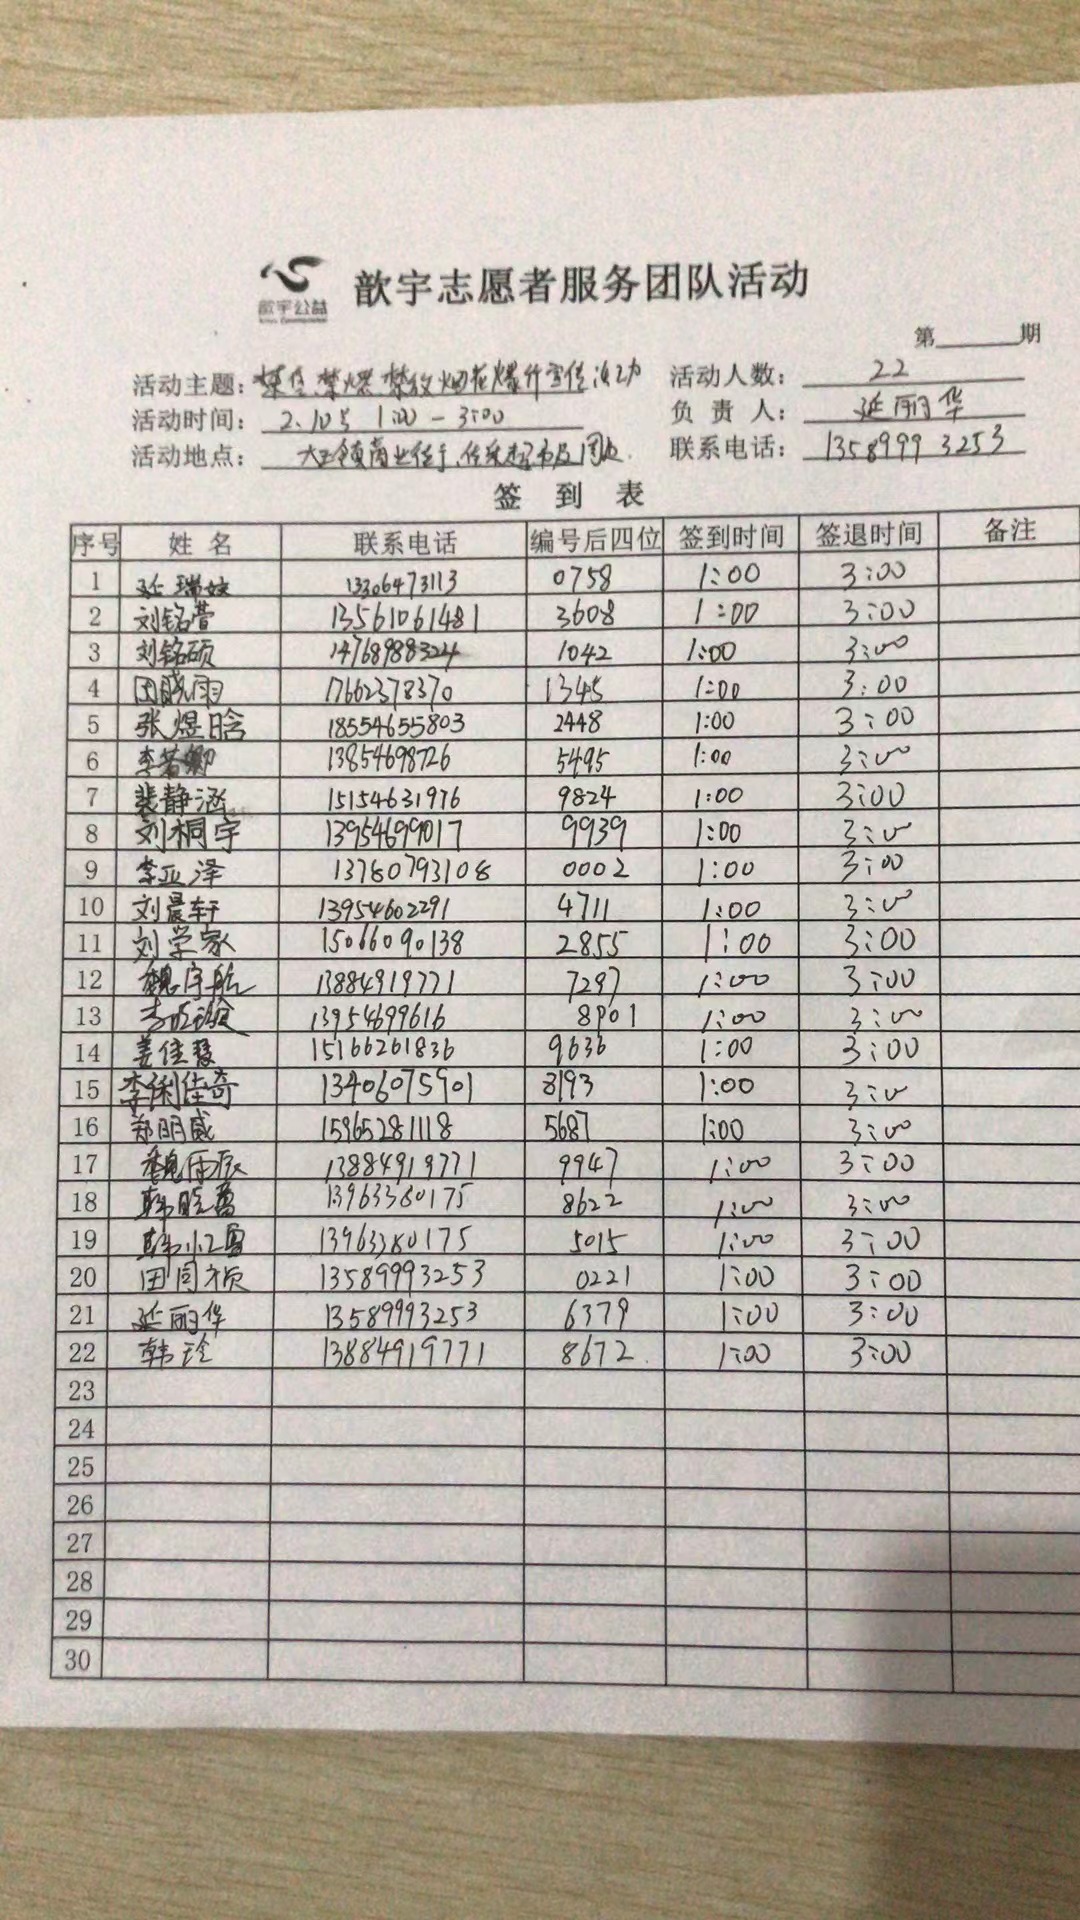 歆宇公益
歆宇志愿者服务团队活动
第______期
活动主题: 禁燃禁放烟花爆竹宣传活动 活动人数: 22
活动时间: 2.10号 1:00-3:00 负责人: 延丽华
活动地点: 镇商业街 联系电话: 13589993253
签到表
序号 姓名 联系电话 编号后四位 签到时间 签退时间 备注
1 延瑞 13306473113 0758 1:00 3:00
2 刘铭萱 13561061481 3608 1:00 3:00
3 刘铭硕 14768988324 1042 1:00 3:00
4 晓雨 17662378370 1345 1:00 3:00
5 张煜晗 18554655803 2448 1:00 3:00
6 李若 13854698726 5495 1:00 3:00
7 裴静涵 15154631976 9824 1:00 3:00
8 刘桐宇 13954699017 9939 1:00 3:00
9 李亚泽 13780793108 0002 1:00 3:00
10 刘晨轩 13954602291 4711 1:00 3:00
11 刘学家 15066090138 2855 1:00 3:00
12 魏宇航 13884919771 7297 1:00 3:00
13 13954699616 8901 1:00 3:00
14 姜佳慧 15166261836 9636 1:00 3:00
15 李俐佳奇 13406075901 8193 1:00 3:00
16 郑明威 15965281118 5687 1:00 3:00
17 魏雨辰 13884919771 9947 1:00 3:00
18 韩 13963380175 8622 1:00 3:00
19 韩小 13963380175 5015 1:00 3:00
20 田闰祯 13589993253 0221 1:00 3:00
21 延丽华 13589993253 6379 1:00 3:00
22 韩玲 13884919771 8672 1:00 3:00
23
24
25
26
27
28
29
30